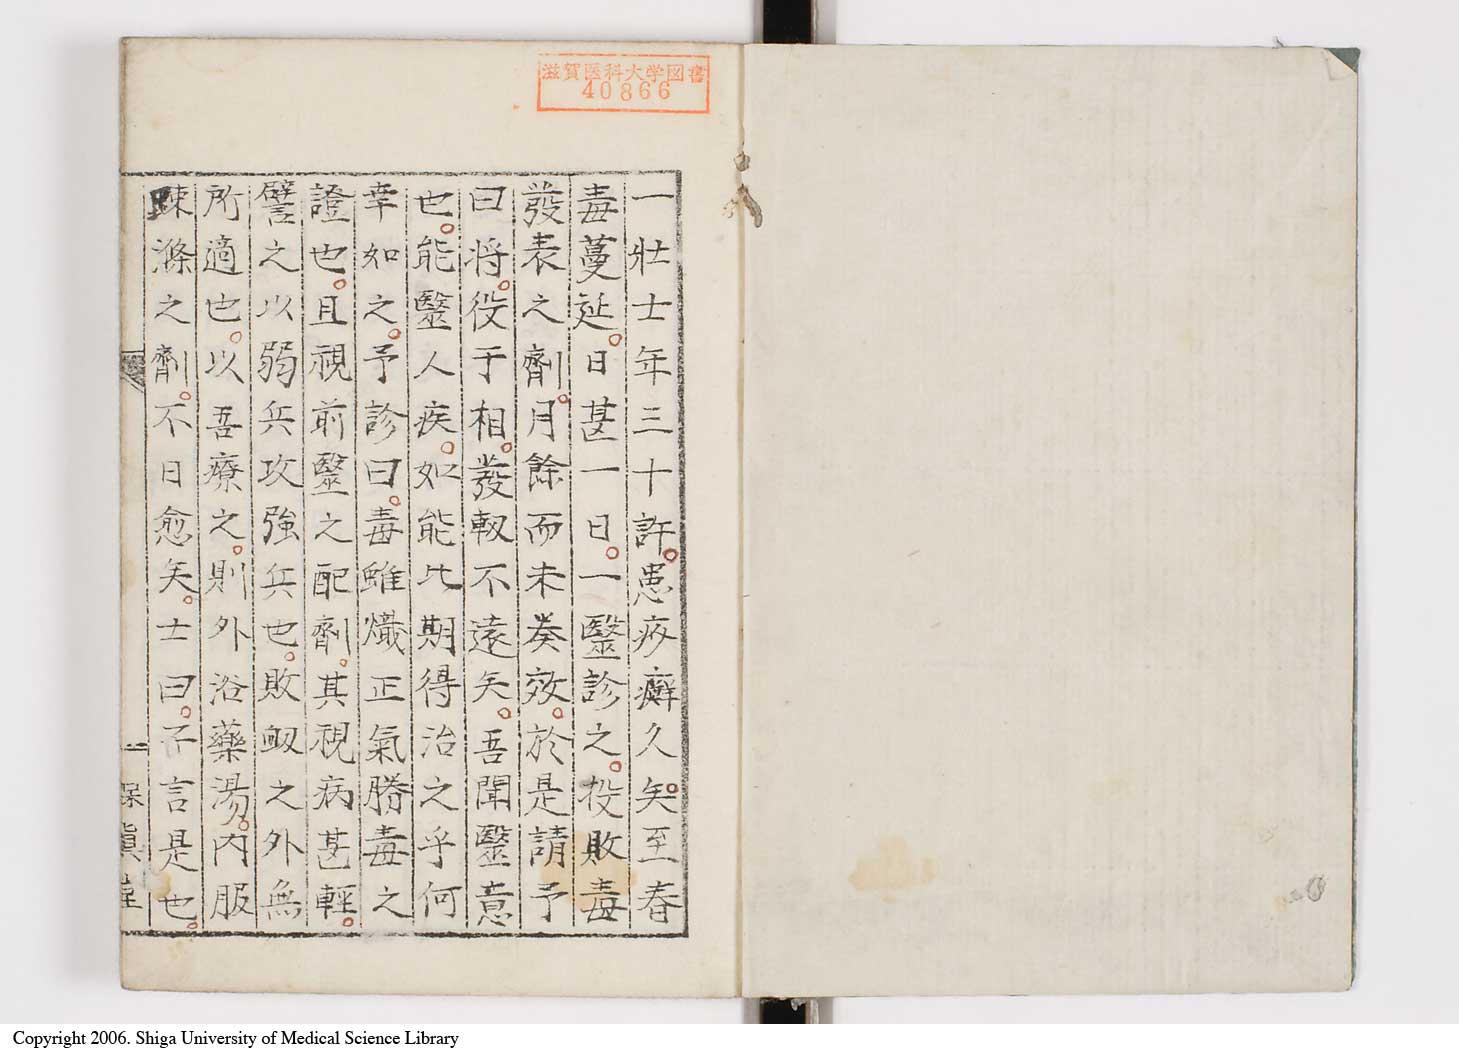 滋賀医科大学図書
40866
一壯士年三十許患疥癬久矣至春
毒蔓延日甚一日一醫診之投敗毒
發表之劑月餘而未奏效於是請予
曰將役于相發軔不遠矣吾聞醫意
也能醫人疾如能此期得治之乎何
幸如之予診曰毒雖熾正氣勝毒之
證也且視前醫之配劑其視病甚輕
譬之以弱兵攻強兵也敗衂之外無
所適也以吾療之則外浴藥湯内服
踈滌之劑不日愈矣士曰子言是也
一 保眞堂
Copyright 2006. Shiga University of Medical Science Library